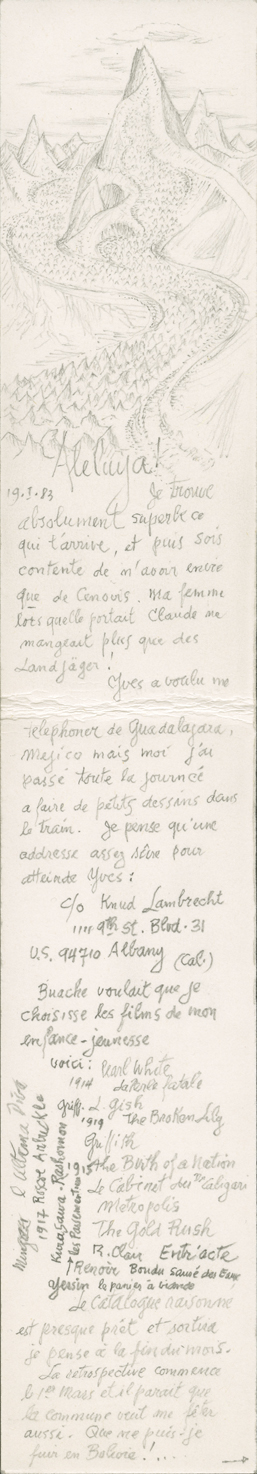 Aleluya!
19.I.83 Je trouve
absolument superbe ce
qui t'arrive, et puis sois
contente de n'avoir envie
que de Cenovis. Ma femme
lors quelle portait Claude ne
mangeait plus que des
Landjäger!
Yves a voulu me
telephoner de Guadalajara,
Mejico mais moi j'ai
passé toute la journée
a faire de petits dessins dans
le train. Je pense qu'une
addresse assez sûre pour
atteindre Yves:
c/o Knud Lambrecht
1111 9th St. Blvd. 31
U.S. 94710 Albany (Cal.)
Buache voulait que je
choisisse les films de mon
enfance-jeunesse
voici: Pearl White
1914 La Perle fatale
Griff. L. Gish
1919 The Broken Lily
Griffith
1915 The Birth of a Nation
Le Cabinet du Dr Caligari
Metropolis
The Gold Rush
R. Clair Entr'acte
Renoir Boudu sauvé des Eaux
Jessin le panier à viande
1917 Roscoe Arbuckle
Kurasawa-Rashomon
Le Catalogue raisonné
est presque prêt et sortira
je pense à la fin du mois.
La retrospective commence
le 1er Mars et il parait que
la commune veut me fêter
aussi. Que ne puis-je
fuir en Bolivie!....
→